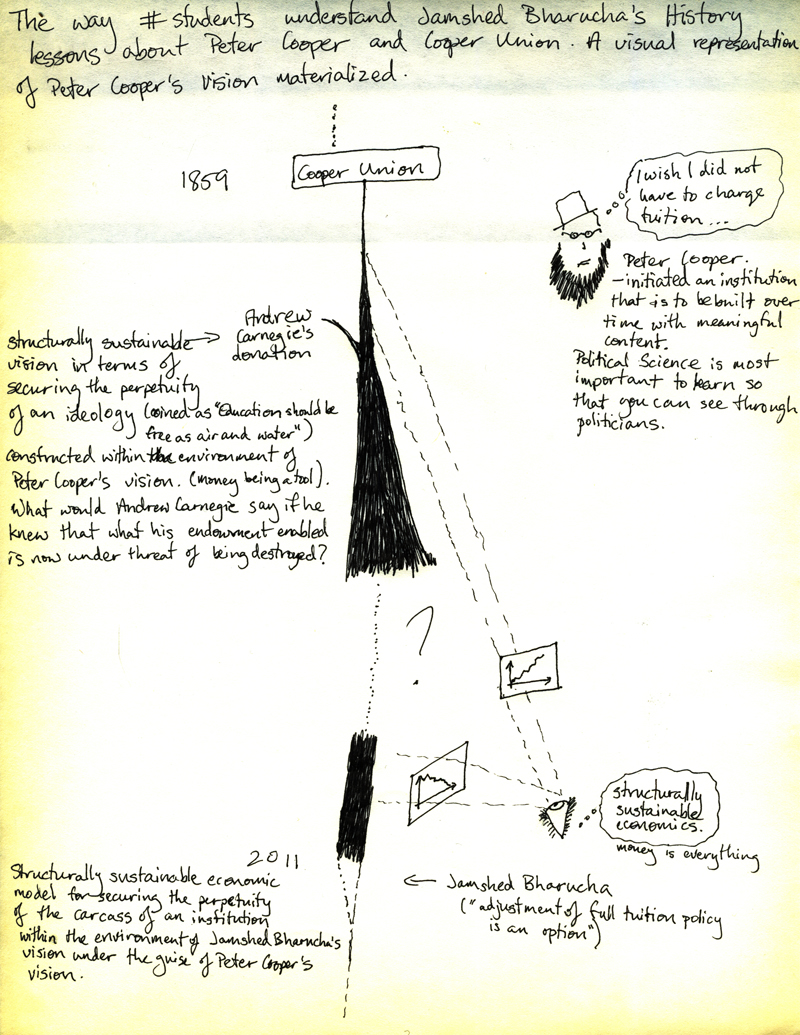 The way #students understand Jamshed Bharucha's History
lessons about Peter Cooper and Cooper Union. A visual representation
of Peter Cooper's vision materialized.
1859
Cooper Union
I wish I did not
have to charge
tuition...
Peter Cooper.
-initiated an institution
that is to be built over
time with meaningful
content.
Political Science is most
important to learn so
that you can see through
politicians.
Andrew
Carnegie's
donation
structurally sustainable →
vision in terms of
securing the perpetuity
of an ideology (coined as "Education should be
free as air and water")
constructed within the environment of
Peter Cooper's vision. (money being a tool).
What would Andrew Carnegie say if he
knew that what his endowment enabled
is now under threat of being destroyed?
?
structurally
sustainable
economics.
money is everything
2011
Structurally sustainable economic
model for securing the perpetuity
of the carcass of an institution
within the environment of Jamshed Bharucha's
vision under the guise of Peter Cooper's
vision.
← Jamshed Bharucha
("adjustment of full tuition policy
is an option")